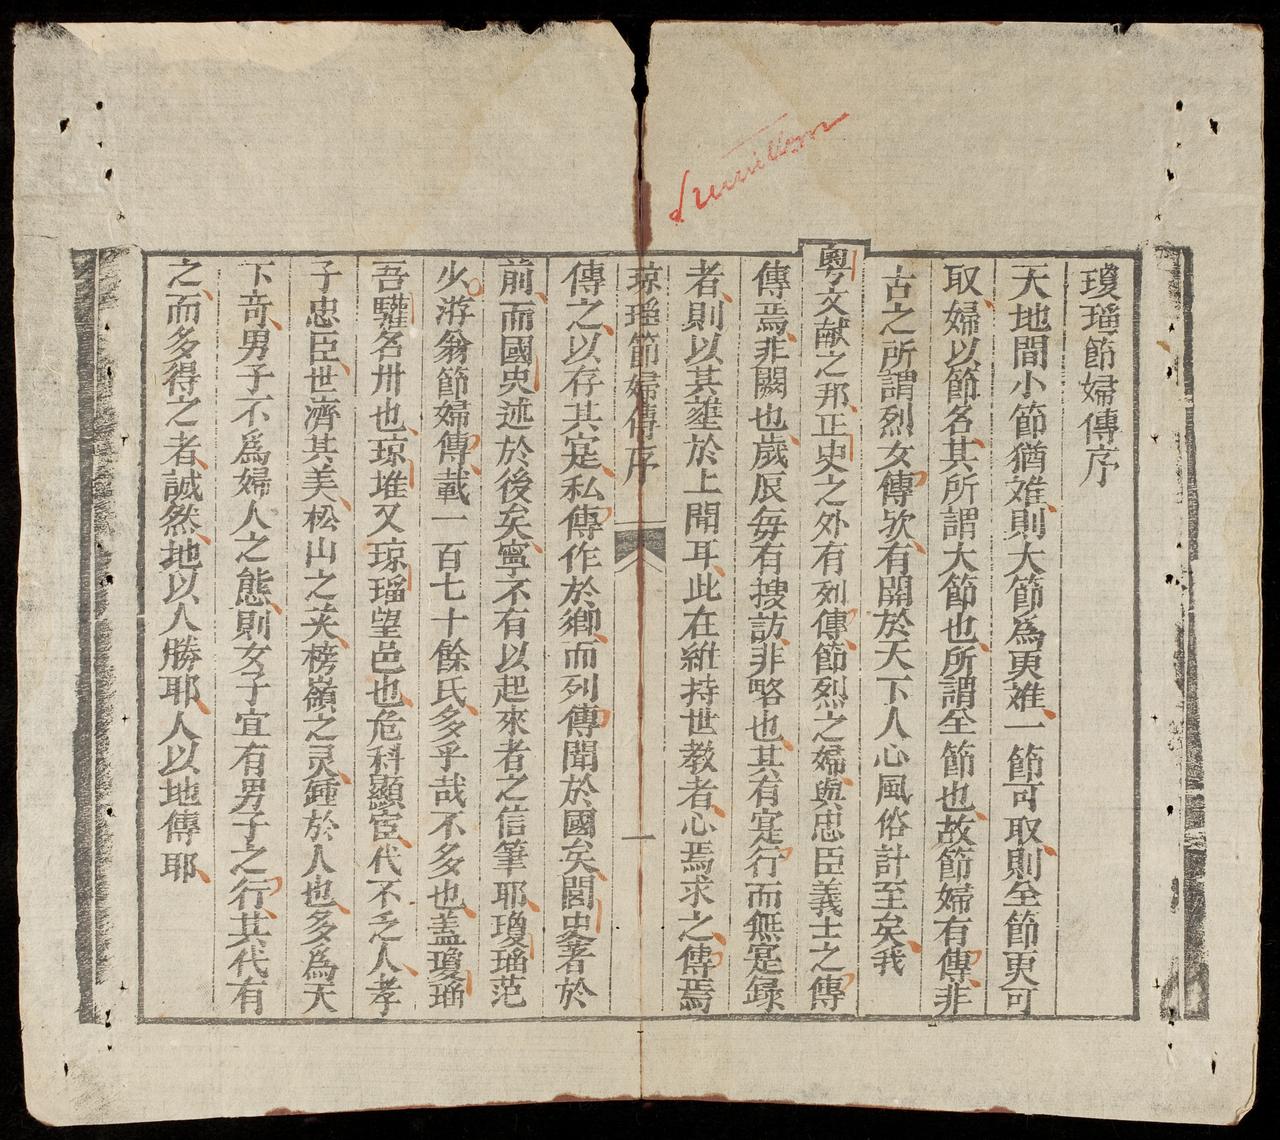 瓊瑠節婦傳序
天地間小節猶难則大節爲更难一節可取則全節更可
取婦以節名其所謂大節也所謂全節也故節婦有傳非
古之所謂烈女傳欤有關於天下人心風俗計至矣我
粵文献之邦正史之外有列傳節烈之婦與忠臣義士之傳
傳焉非闕也歲辰每有搜訪非略也其有寔行而無寔録
者則以其難於上聞耳此在維持世教者心焉求之傳焉
琼瑠節婦傳序
一
傳之以存其寔私傳作於鄉而列傳聞於國矣閭史著於
前而國史述於後矣寧不有以起來者之信筆耶瓊瑠范
火游翁節婦傳載一百七十餘氏多乎哉不多也盖瓊瑠
吾驩名卅也琼堆又琼瑠望邑也危科顯宦代不乏人孝
子忠臣世濟其美松山之英榜嶺之灵鍾於人也多爲天
下奇男子不爲婦人之態則女子宜有男子之行其代有
之而多得之者誠然地以人勝耶人以地傳耶